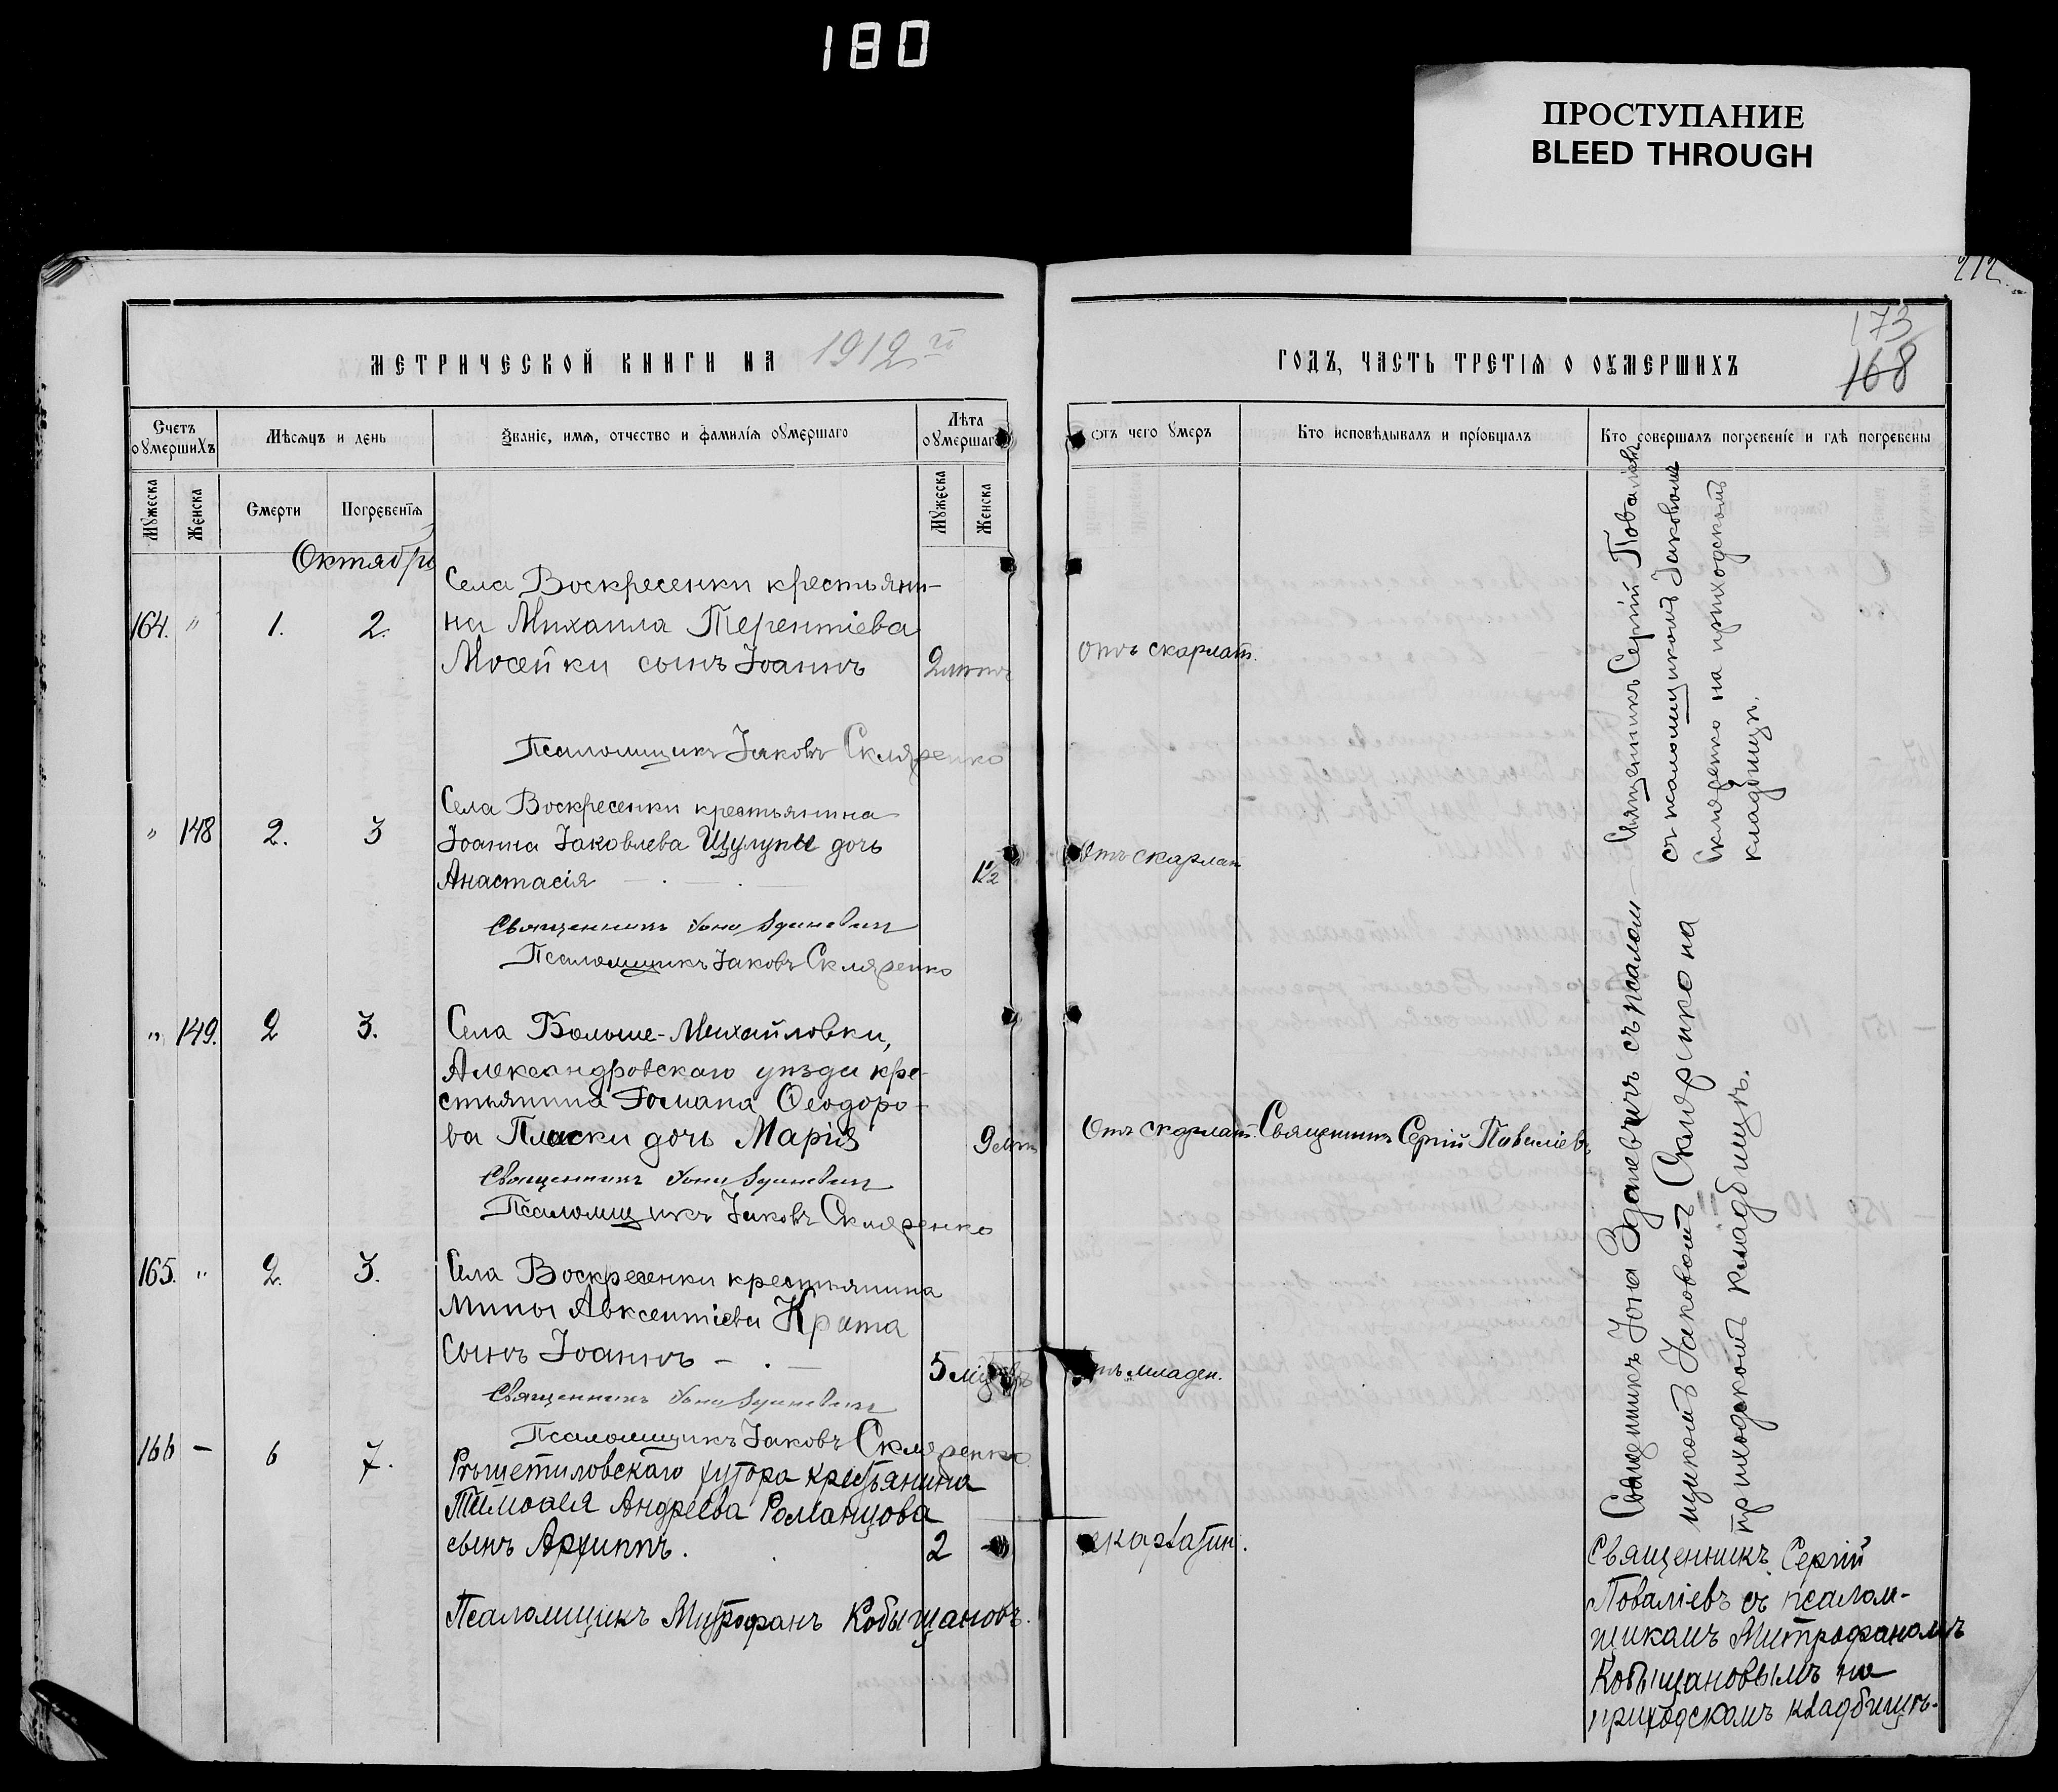 180
ПРОСТУПАНИЕ
BLEED THROUGH
212
173
168
МЕТРИЧЕСКОЙ КНИГИ НА 1912 го
ГОДЪ, ЧАСТЬ ТРЕТІЯ О ОУМЕРШИХЪ
Счетъ оумершихъ
Мѣсяцъ и день
Званіе, имя, отчество и фамилія оумершаго
Лѣта оумершаго
Отъ чего умеръ
Кто исповѣдывалъ и пріобщалъ
Кто совершалъ погребеніе и гдѣ погребены
Мужеска
Женска
Смерти
Погребенія
Мужеска
Женска
Октябрь
164. " 1. 2.
Села Воскресенки крестьяни-
на Михаила Терентіева
Мосейки сынъ Іоаннъ
2 лѣтъ
отъ скарлат.
Псаломщикъ Іаковъ Скляренко
" 148 2. 3
Села Воскресенки крестьянина
Іоанна Іаковлева Щулупы дочь
Анастасія
1 1/2
Отъ скарлат
Священникъ Іона Зданевич
Псаломщикъ Іаковъ Скляренко
Священникъ Сергій Поваліевъ
съ псаломщикомъ Іаковомъ
Скляренко на приходскомъ
кладбищѣ.
" 149. 2 3.
Села Больше-Михайловки,
Александровскаго уѣзда кре-
стьянина Романа Ѳеодоро-
ва Пласки дочь Марія
9 лѣтъ
Отъ скарлат.
Священникъ Сергій Поваліевъ
Священникъ Іона Зданевич
Псаломщикъ Іаковъ Скляренко
165. " 2. 3.
Села Воскресенки крестьянина
Мины Авксентіева Крата
сынъ Іоаннъ
5
отъ младен.
Священникъ Іона Зданевич
Псаломщикъ Іаковъ Скляренко
Священникъ Іона Зданевичъ съ псалом-
щикомъ Іаковомъ Скляренко на
приходскомъ кладбищѣ.
166 - 6 7.
Рѣшетиловскаго хутора крестьянина
Тимоѳея Андреева Романцова
сынъ Архиппъ.
2 -
скарлатин.
Псаломщикъ Митрофанъ Кобыщановъ.
Священникъ Сергій
Поваліевъ съ псалом-
щикомъ Митрофаномъ
Кобыщановымъ на
приходскомъ кладбищѣ.